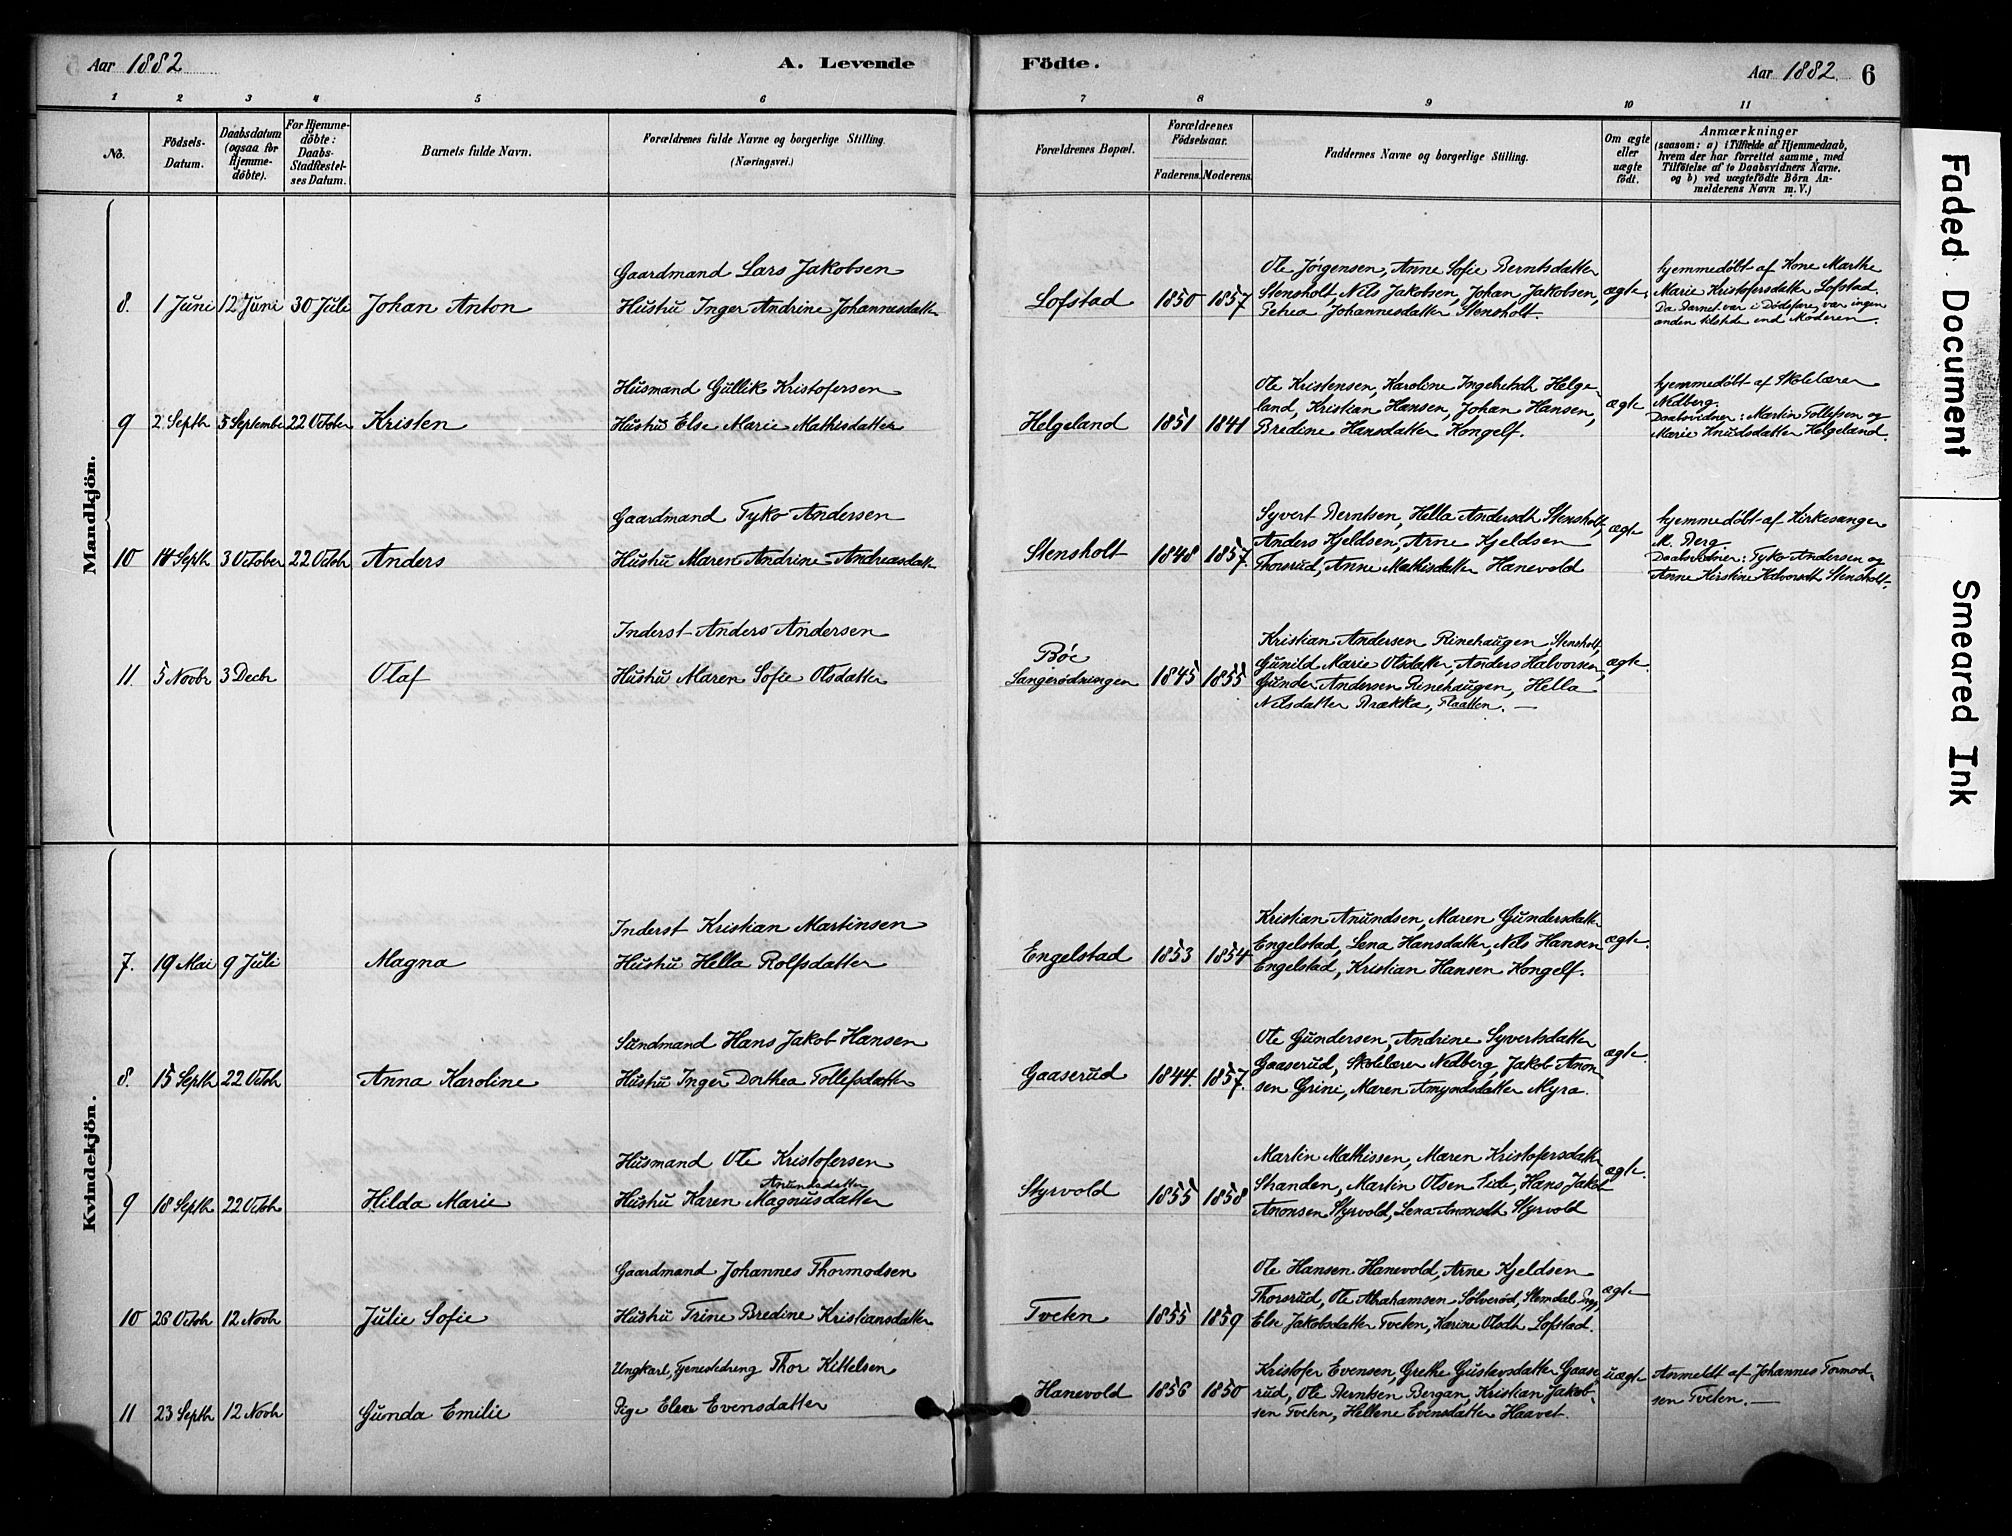 Aar 1882
A. Levende
Födte.
Aar 1882. 6
1 2 3 4 5 6 7 8 9 10 11
No.
Födsels-
Datum.
Daabsdatum
(ogsaa for
Hjemme-
döbte).
For Hjemme-
döbte:
Daabs-
Stadfæstel-
ses Datum.
Barnets fulde Navn.
Forældrenes fulde Navne og borgerlige Stilling.
(Næringsvei.)
Forældrenes Bopæl.
Forældrenes
Födselsaar.
Faderens. Moderens.
Faddernes Navne og borgerlige Stilling.
Om ægte
eller
uægte
födt.
Anmærkninger
(saasom: a) i Tilfælde af Hjemmedaab,
hvem der har forrettet samme, med
Tilföielse af to Daabsvidners Navne.
og b) ved uægtefödte Börn An-
melderens Navn m. V.)
Mandkjön.
8. 1 Juni 12 Juni 30 Juli Johan Anton
Gaardmand Lars Jakobsen
Hustru Inger Andrine Johannesdatter
Lofstad 1850 1857
Ole Jørgensen, Anne Sofie Berntsdatter
Stensholt, Nils Jakobsen, Johan Jakobsen,
Petrea Johannesdatter Stensholt.
ægte.
hjemmedöbt af Kone Marthe
Marie Kristofersdatter Lofstad.
Da Barnet var i Dödsfare, var ingen
anden tilstede end Moderen.
9 2 Septbr 5 September 22 October Kristen
Husmand Gullik Kristofersen
Hustru Else Marie Mathisdatter
Helgeland 1851 1841
Ole Kristensen, Karoline Ingebretsdtr Helge-
land, Kristian Hansen, Johan Hansen,
Bredine Hansdatter Kongelf.
ægte
hjemmedöbt af Skolelærer
Nedberg.
Daabsvidner: Martin Tollefsen og
Marie Knudsdatter Helgeland.
10 14 Septbr 3 October 22 Octobr Anders
Gaardmand Tyko Andersen
Hustru Maren Andrine Andreasdatter
Stensholt 1848 1857
Syvert Berntsen, Hella Andersdtr Stensholt,
Anders Kjeldsen, Arne Kjeldsen
Thorsrud, Anne Mathisdatter Hanevold
ægte
hjemmedöbt af Kirkesanger
M. Berg.
Daabsvidner: Tyko Andersen og
Anne Kirstine Halvorsdtr Stensholt.
11. 5 Novbr 3 Decbr Olaf
Inderst Anders Andersen
Hustru Maren Sofie Olsdatter
Böe
Langerødningen 1845 1855
Kristian Andersen Rinehaugen, Stensholt,
Gunild Marie Olsdatter, Anders Halvorsen,
Gunder Andersen Rinehaugen, Hella
Nilsdatter Brække, Plaatten.
ægte.
Kvindekjön.
7. 19 Mai 9 Juli Magna
Inderst Kristian Martinsen
Hustru Hella Rolfsdatter
Engelstad 1853 1854
Kristian Anundsen, Maren Gundersdatter
Engelstad, Lena Hansdatter, Nils Hansen
Engelstad, Kristian Hansen Kongelf.
ægte.
8. 15 Septbr 22 Octobr Anna Karoline
Sundmand Hans Jakob Hansen
Hustru Inger Dorthea Tollefsdatter
Gaaserud 1844. 1857.
Ole Gundersen, Andrine Syvertsdatter
Gaaserud, Skolelærer Nedberg, Jakob Anon-
sen Grini, Maren Amundsdatter Myra.
ægte.
9 18 Septbr 22 Octobr Hilda Marie
Husmand Ole Kristofersen
Anundsdatter
Hustru Karen Magnusdatter
Styrvold 1855 1858
Martin Mathissen, Maren Kristofersdatter
Stranden, Martin Olsen Lide, Hans Jakob
Anonsen Styrvold, Lena Anonsdtr Styrvold
ægte.
10 26 Octobr 12 Novbr Julie Sofie
Gaardmand Johannes Thormodsen
Hustru Trine Bredine Kristiansdatter
Tveten 1855 1859
Ole Hansen Hanevold, Arne Kjeldsen
Thorsrud, Ole Abrahamsen Sölverød, Slemdal
Else Jakobsdatter Tveten, Karine Olsdtr Lofstad.
ægte
11 23 Septbr 12 Novbr Gunda Emilie
Ungkarl, Tjenestedreng Thor Kittelsen
Pige Elen Evensdatter
Hanevold 1856 1850
Kristofer Evensen, Grethe Gustavsdatter Gaase-
rud, Ole Berntsen Bergan, Kristian Jakob-
sen Tveten, Hellene Evensdatter Haavet.
uægte
Anmeldt af Johannes Tormod-
sen Tveten.
Faded Document
Smeared Ink